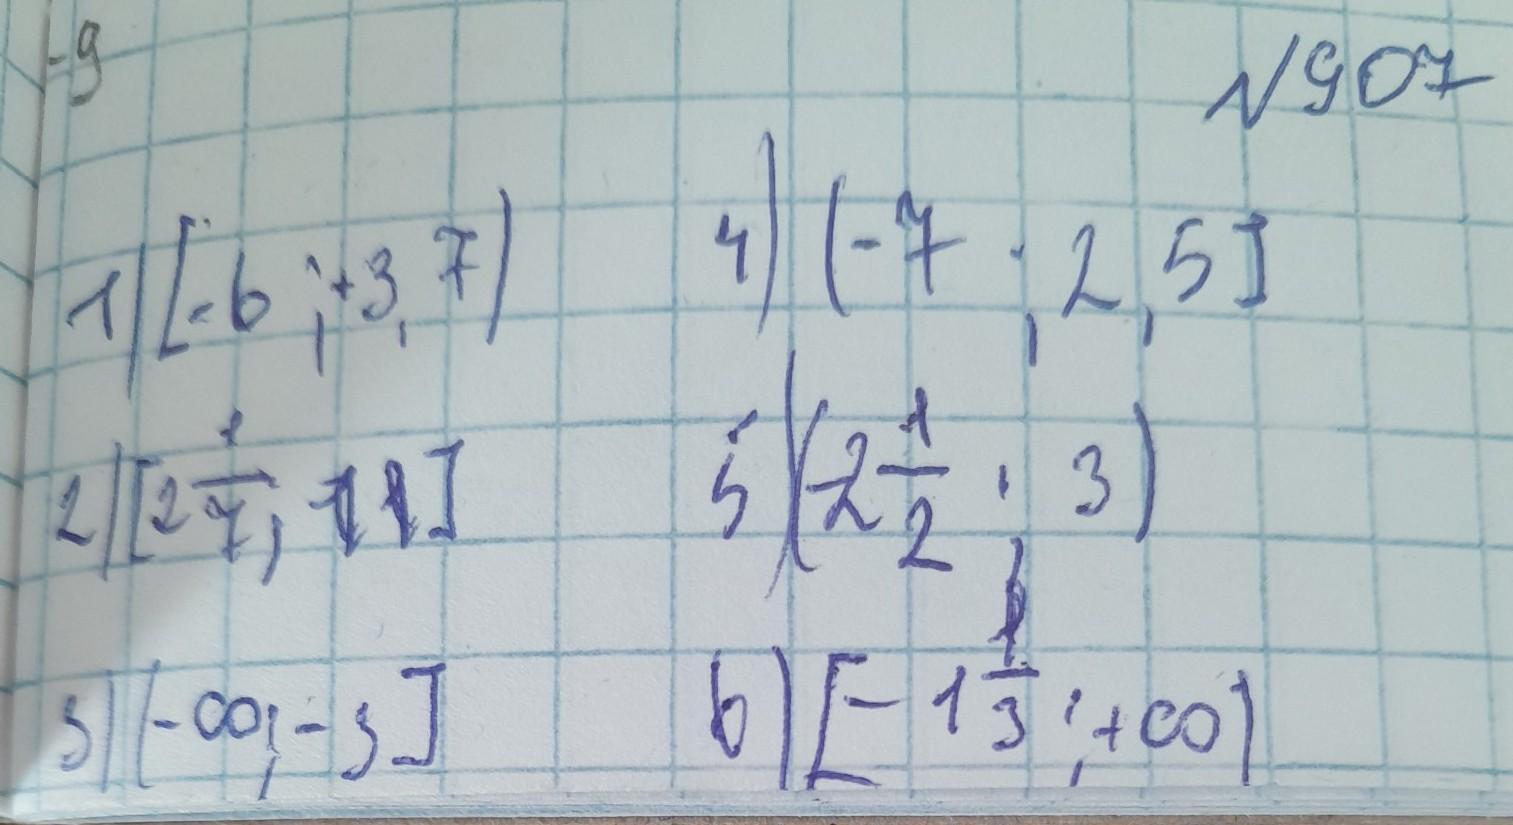 -9
№907
1) [-6; +3,7)
4) (-7; 2,5]
2) [2 1/7; 11]
5) (-2 1/2; 3)
3) (-∞; -3]
6) [-1 1/3; +∞)